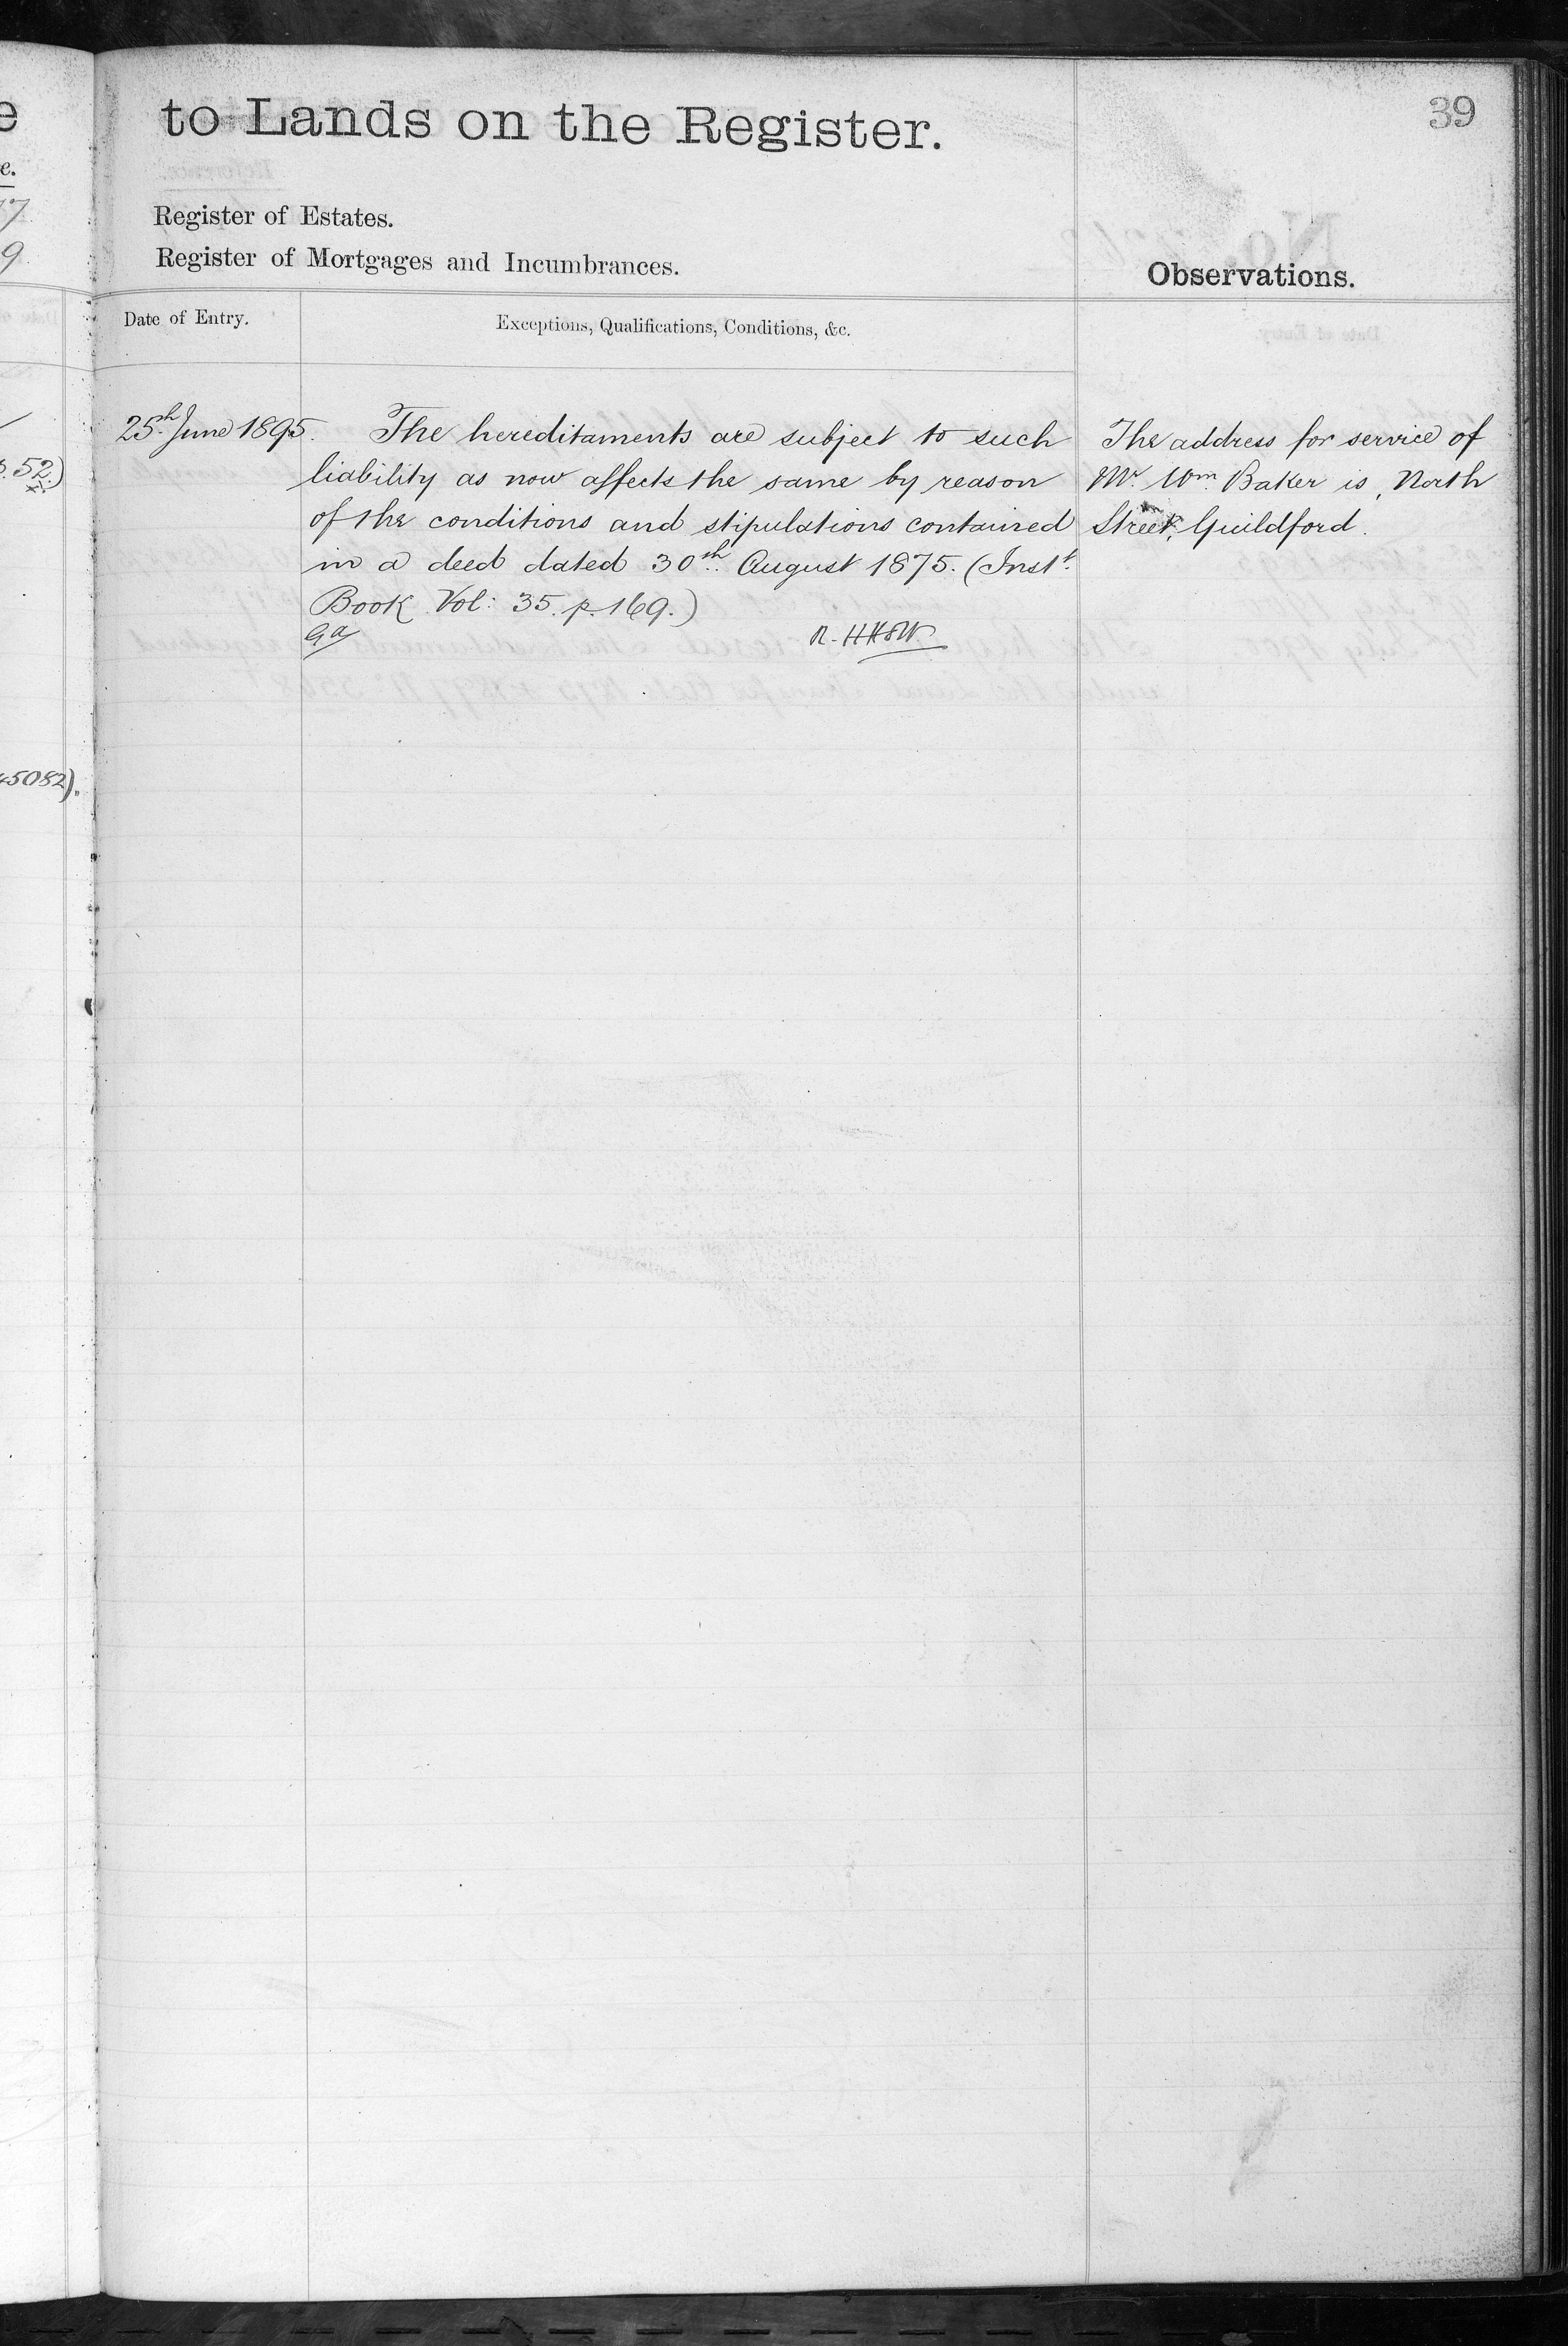 to Lands on the Register.
39
Register of Estates.
Register of Mortgages and Incumbrances.
Observations.
Date of Entry.
Exceptions, Qualifications, Conditions, &c.
25th June 1895.
The hereditaments are subject to such
liability as now affects the same by reason
of the conditions and stipulations contained
in a deed dated 30th August 1875. (Inst.
Book Vol: 35. p. 169.)
The address for service of
Mr. Wm. Baker is, North
Street, Guildford.
e
e.
77
9
p. 52.)
45082).